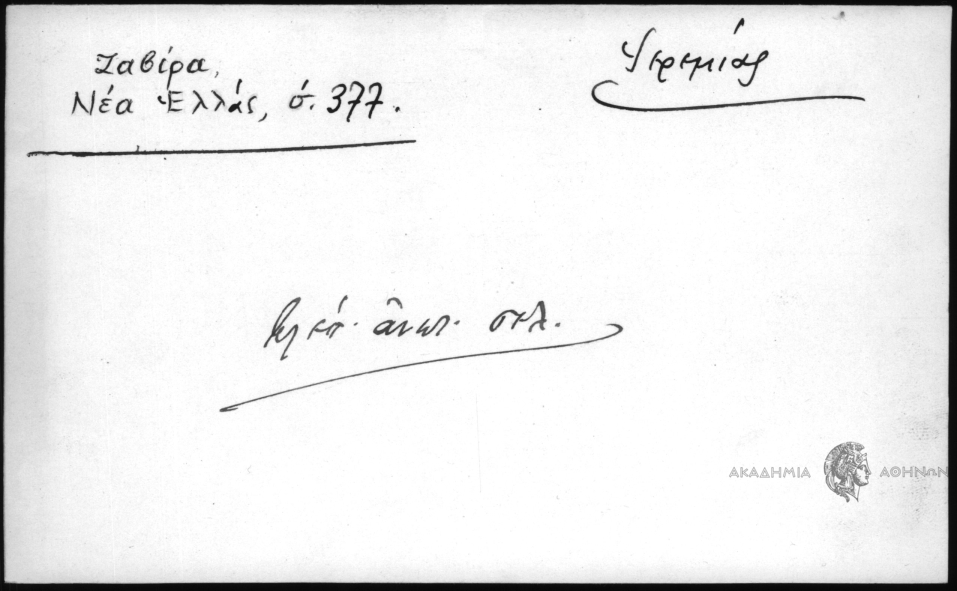 Ζαβίρα,
Νέα Ἑλλάς, σ. 377.
Ἱερεμίας
ἄνωτ. σελ.
ΑΚΑΔΗΜΙΑ ΑΘΗΝΩΝ